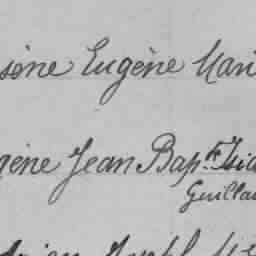 sène Eugène Mari
gène Jean Bapᵗᵉ Isid
Guilla